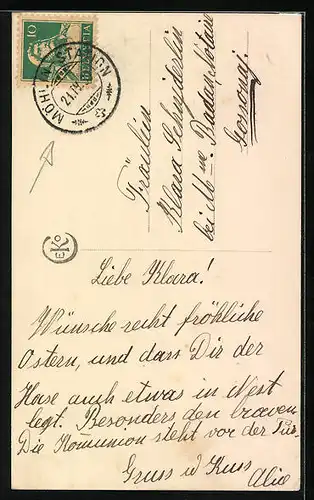 10
HELVETIA
MÖHLIN STATION
21.IV.
Fräulein
Klara Schneiderlin
bei Mme. Badan-Nolain
EKO
Liebe Klara!
Wünsche recht fröhliche
Ostern, und dass Dir der
Hase auch etwas in Nest
legt. Besonders den braven
Die Komunion steht vor der Tür.
Gruss u Kuss
Alice